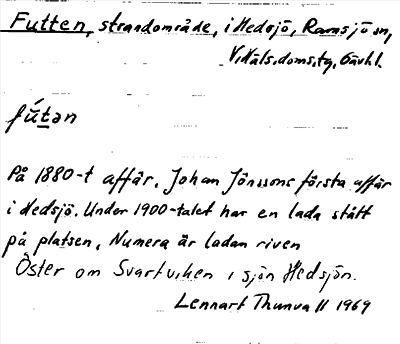 Futten, strandområde, i Hedsjö, Ramsjö sn,
V. Häls. doms. tg, Gävhl.
fút̲ən
På 1880-t affär. Johan Jönssons första affär
i Hedsjö. Under 1900-talet har en lada stått
på platsen. Numera är ladan riven
Öster om Svartviken i sjön Hedsjön.
Lennart Thunvall 1969